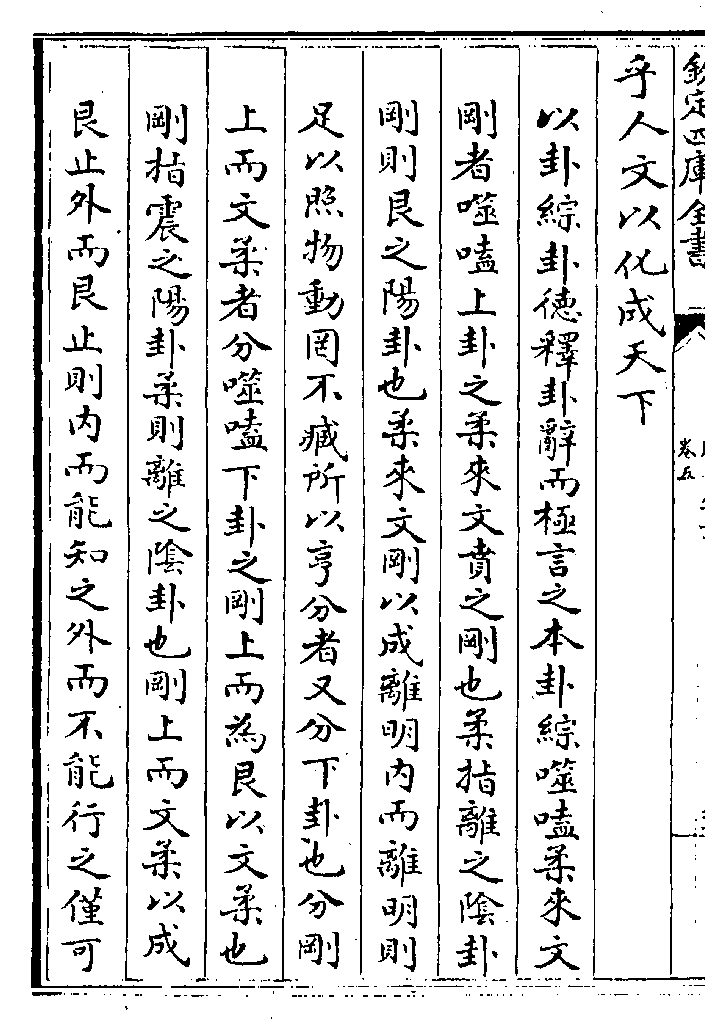 欽定四庫全書
卷五
乎人文以化成天下
以卦綜卦德釋卦辭而極言之本卦綜噬嗑柔來文
剛者噬嗑上卦之柔來文賁之剛也柔指離之陰卦
剛則艮之陽卦也柔來文剛以成離明内而離明則
足以照物動罔不臧所以亨分者又分下卦也分剛
上而文柔者分噬嗑下卦之剛上而為艮以文柔也
剛指震之陽卦柔則離之陰卦也剛上而文柔以成
艮止外而艮止則内而能知之外而不能行之僅可